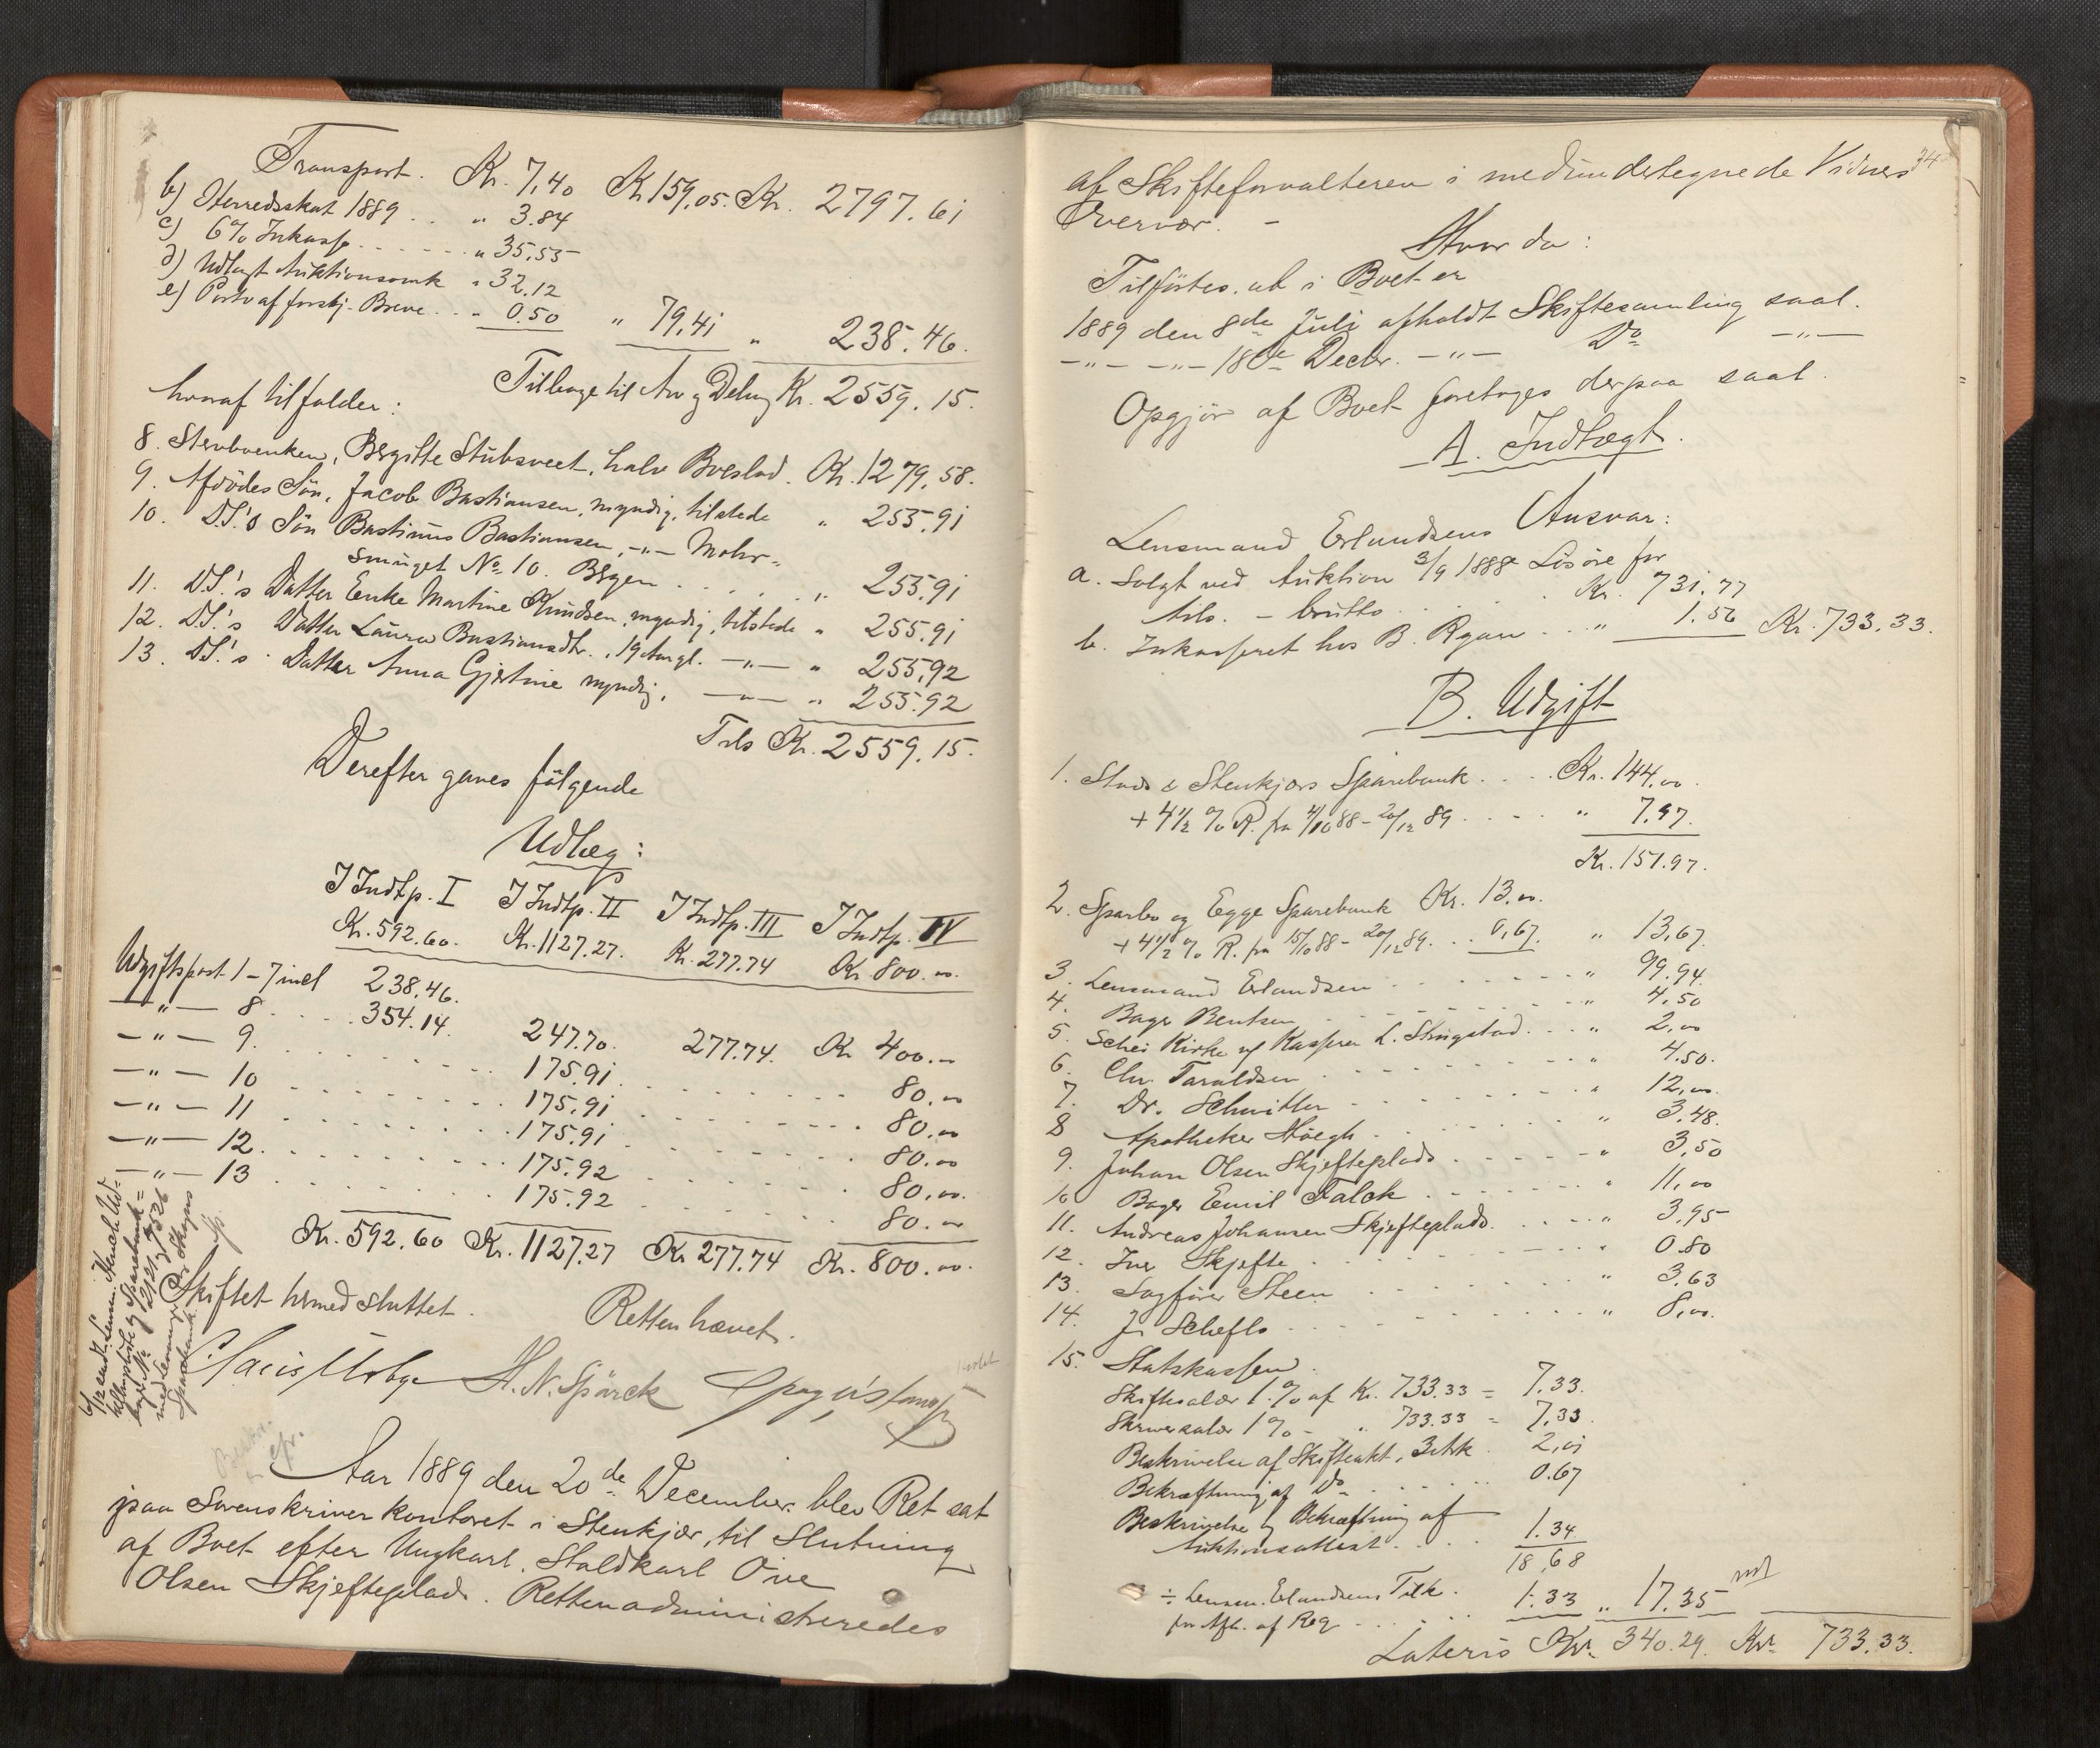 Transport. Kr. 7,40 Kr 159,05. Kr. 2797.61
b) Herredsskat 1889 . . " 3.84
c) 6% Inkasso - - - - - " 35,55
d) Udlagt Auktionsomk " 32.12
e) Porto af forskj. Breve . . " 0.50 " 79,41 " 238.46.
Tilbage til Arv og Deling Kr. 2559.15.
hvoraf tilfalder:
8. Stervboenken, Bergitte Stubsveet, halv Boeslod. Kr. 1279,58.
9. Afdødes Søn, Jacob Bastiansen, myndig, tilstede " 255.91
10. D.S.'s Søn Bastinus Bastiansen, -"- Mohr-
smuget No 10. Bergen . . . . " 255.91
11. D.S.'s Datter Enke Martine Knudsen, myndig, tilstede " 255.91
12. D.S.'s Datter Laura Bastiansdtr., 19 Aar gl. -"- " 255,92
13. D.S.'s Datter Anna Gjertine myndig, -"- " 255.92
Tils Kr. 2559.15.
Derefter gaves følgende
Udlæg:
I Indtp. I I Indtp. II I Indtp. III I Indtp. IV
Kr. 592.60. Kr. 1127.27. Kr. 277.74 Kr. 800.00.
Udgiftspost 1-7 incl 238.46.
-"- 8. . . . 354.14. 247.70. 277.74. Kr 400.00
-"- 9. . . . 175.91 . . . 80.00
-"- 10 . . . 175.91 . . . 80.00
-"- 11 . . . 175.91 . . . 80.00
-"- 12. . . . 175.92 . . . 80.00.
-"- 13 . . . 175.92 . . . 80.00
Kr. 592.60 Kr. 1127.27 Kr 277.74 Kr. 800.00.
Skiftet hermed sluttet. Retten hævet.
H. N. Spärck
Aar 1889 den 20de December blev Ret sat
paa Sorenskriverkontoret i Stenkjær, til Slutning
af Boet efter Ungkarl, Staldkarl Ove
Olsen Skjefteplads. Retten administreredes
34
af Skifteforvalteren i medundertegnede Vidners
Overvær. -
Hvor da:
Tilførtes, at i Boet er
1889 den 8de Juli afholdt Skiftesamling saal.
-"- -"- 18de Decbr. -"- Do -"-
Opgjør af Boet foretages derpaa saal.
A. Indtægt.
Lensmand Erlandsens Ansvar:
a. Solgt ved Auktion 3/9 1888 Løsøre for
tils. - brutto . . . . . Kr. 731.77
b. Inkasseret hos B. Ryan . . " 1.56 Kr. 733.33.
B. Udgift
1. Stods & Stenkjærs Sparebank . . . . Kr. 144.00.
+ 4½ % R. fra 4/10 88 - 20/12 89 . . . . " 7.97.
Kr. 151.97.
2. Sparbu og Egge Sparebank Kr. 13.00.
+ 4½ % R. fra 15/10 88 - 20/12 89. . . 0,67. " 13,67
3. Lensmand Erlandsen . . . . " 99.94.
4. Bager Bentsen . . . . " 4.50
5. Schei Kirke v/ Kasserer L. Strugstad . . . " 2,00
6. Chr. Taraldsen . . . . " 4.50.
7. Dr. Schmitler . . . . " 12,00.
8 Apotheker Høegh . . . . " 3.48.
9. Johan Olsen Skjefteplads . . . . " 3,50
10 Bager Emil Falck . . . . " 11,00
11. Andreas Johansen Skjefteplads. . . . " 3,95
12. Iver Skjefte . . . . " 0.80
13. Sagfører Steen . . . . " 3.63
14. J. Schefte . . . . " 8,00.
15. Statskassen.
Skiftesalær 1 % af Kr. 733.33 = 7.33.
Skriversalær 1% - " 733.33 = 7,33
Beskrivelse af Skifteakt, 3 Ark . 2,01
Bekræftning af Do . . . . 0.67
Beskrivelse og Bekræftning af
Auktionsattest . . . . 1.34
18,68
÷ Lensm. Erlandsens Tilk.
for Afh. af Reg . . . . 1.33 " 17.35
Lateris Kr. 340.29. Kr. 733.33.